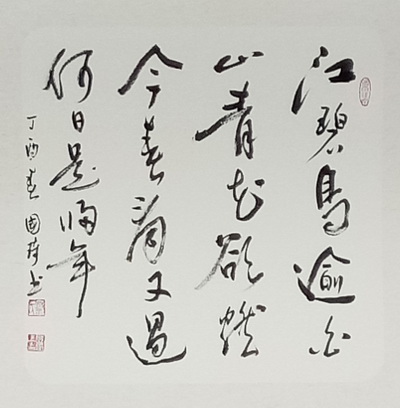 江碧鳥逾白
山青花欲燃
今春看又過
何日是歸年
丁酉春國書